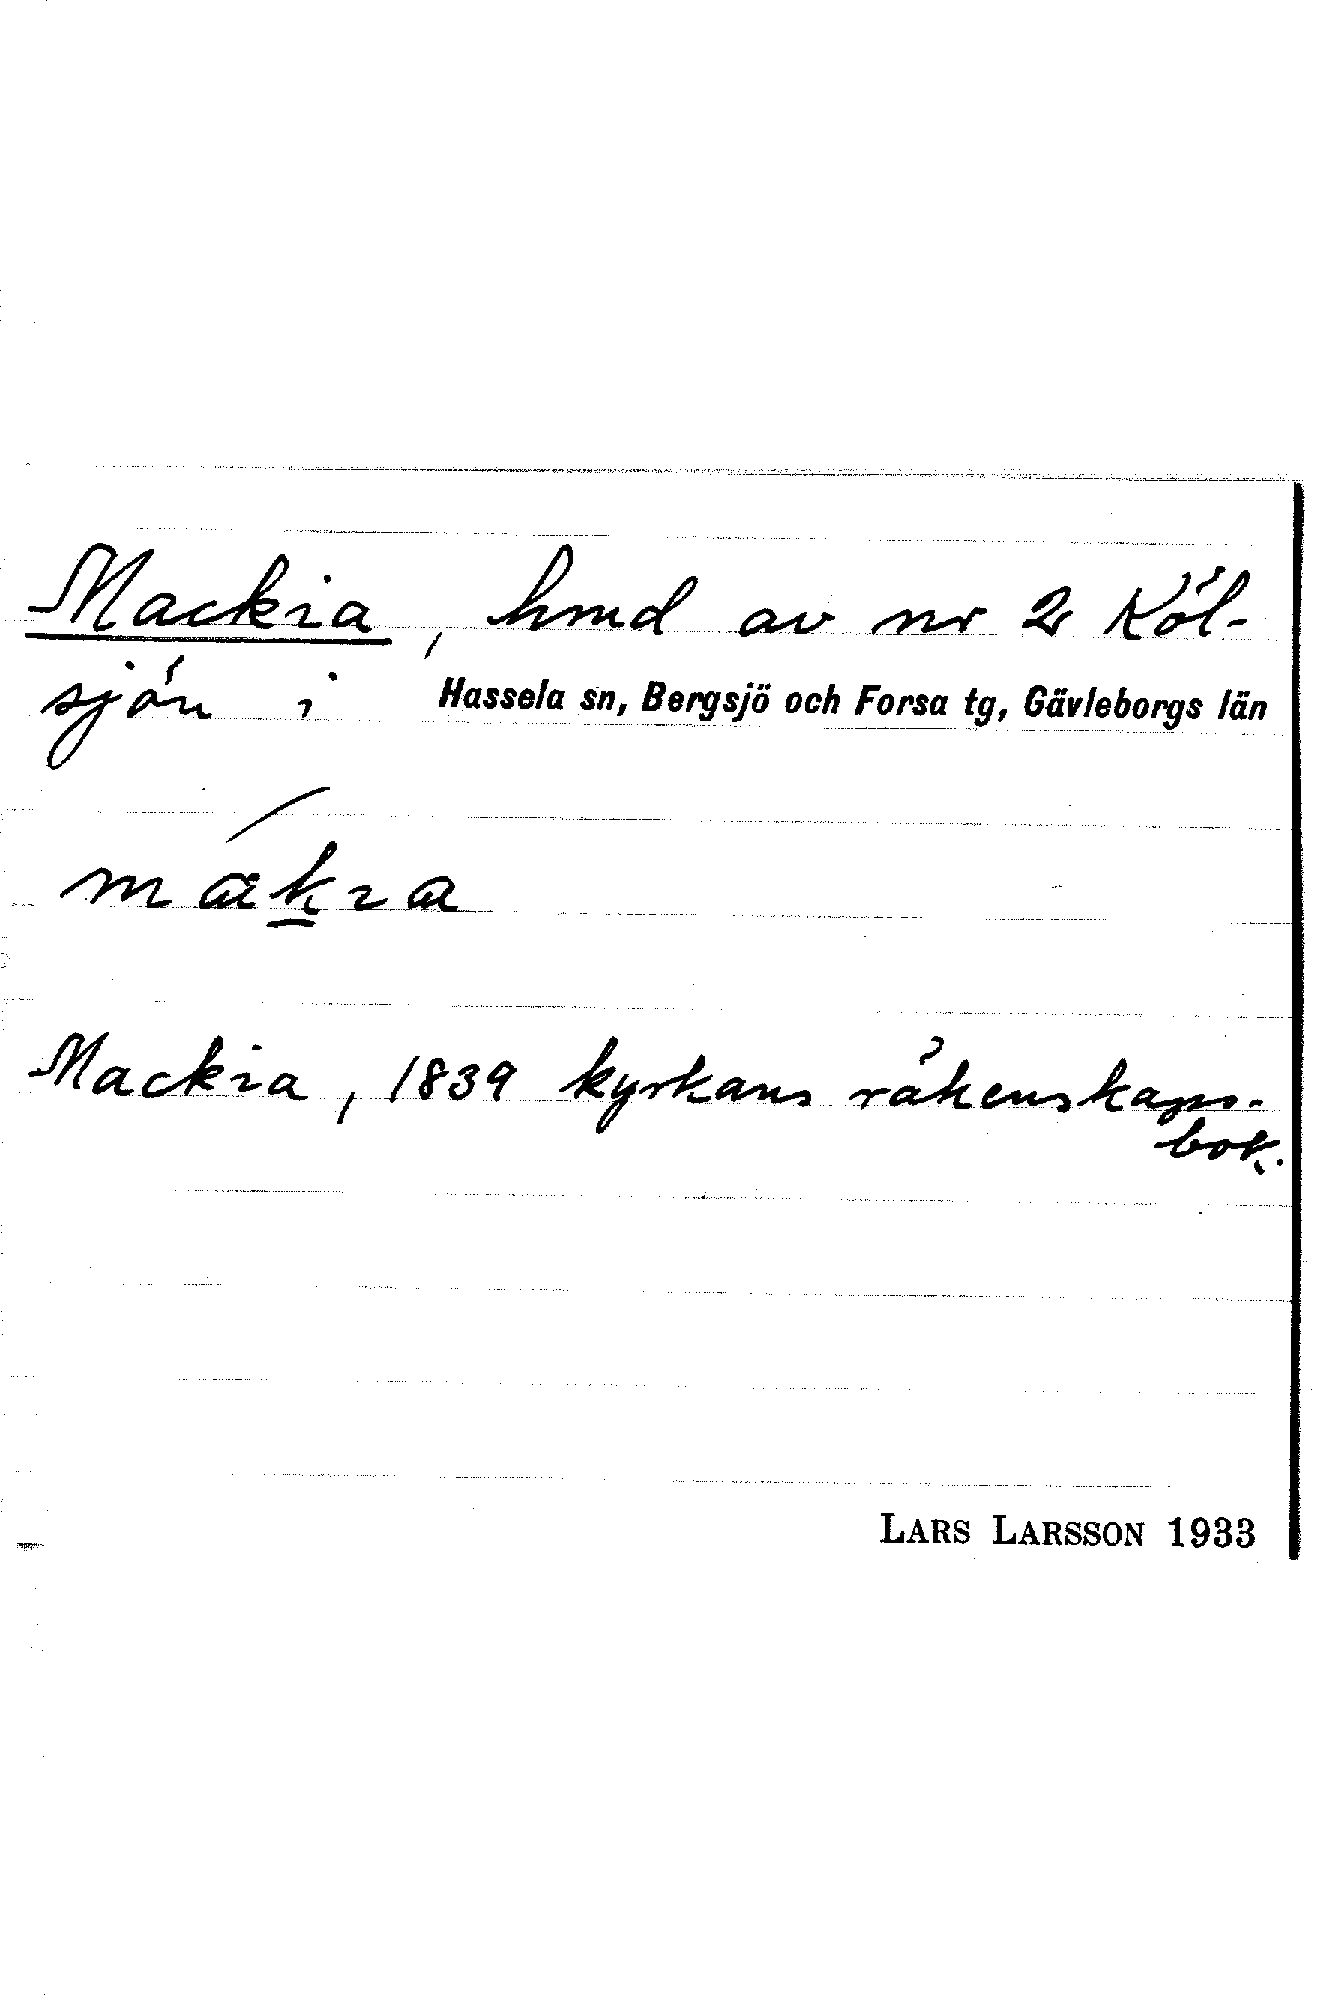 Mackia, hmd av nr 2 Köl-
sjön i Hassela sn, Bergsjö och Forsa tg, Gävleborgs län
Mackia, 1839 kyrkans räkenskaps-
bok.
LARS LARSSON 1933